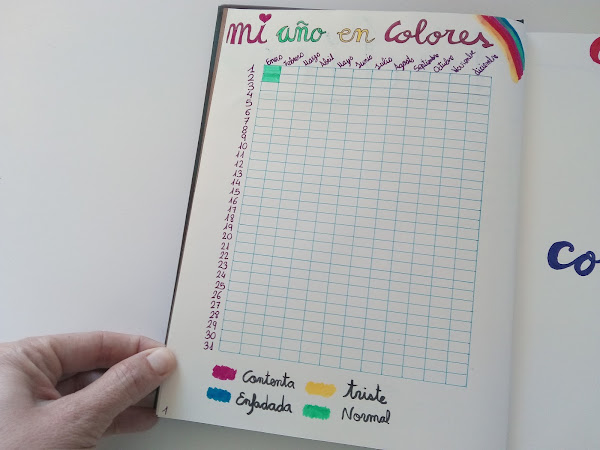 Mi año en colores
Enero Febrero Marzo Abril Mayo Junio Julio Agosto Septiembre Octubre Noviembre Diciembre
1
2
3
4
5
6
7
8
9
10
11
12
13
14
15
16
17
18
19
20
21
22
23
24
25
26
27
28
29
30
31
Contenta triste
Enfadada Normal
1
co